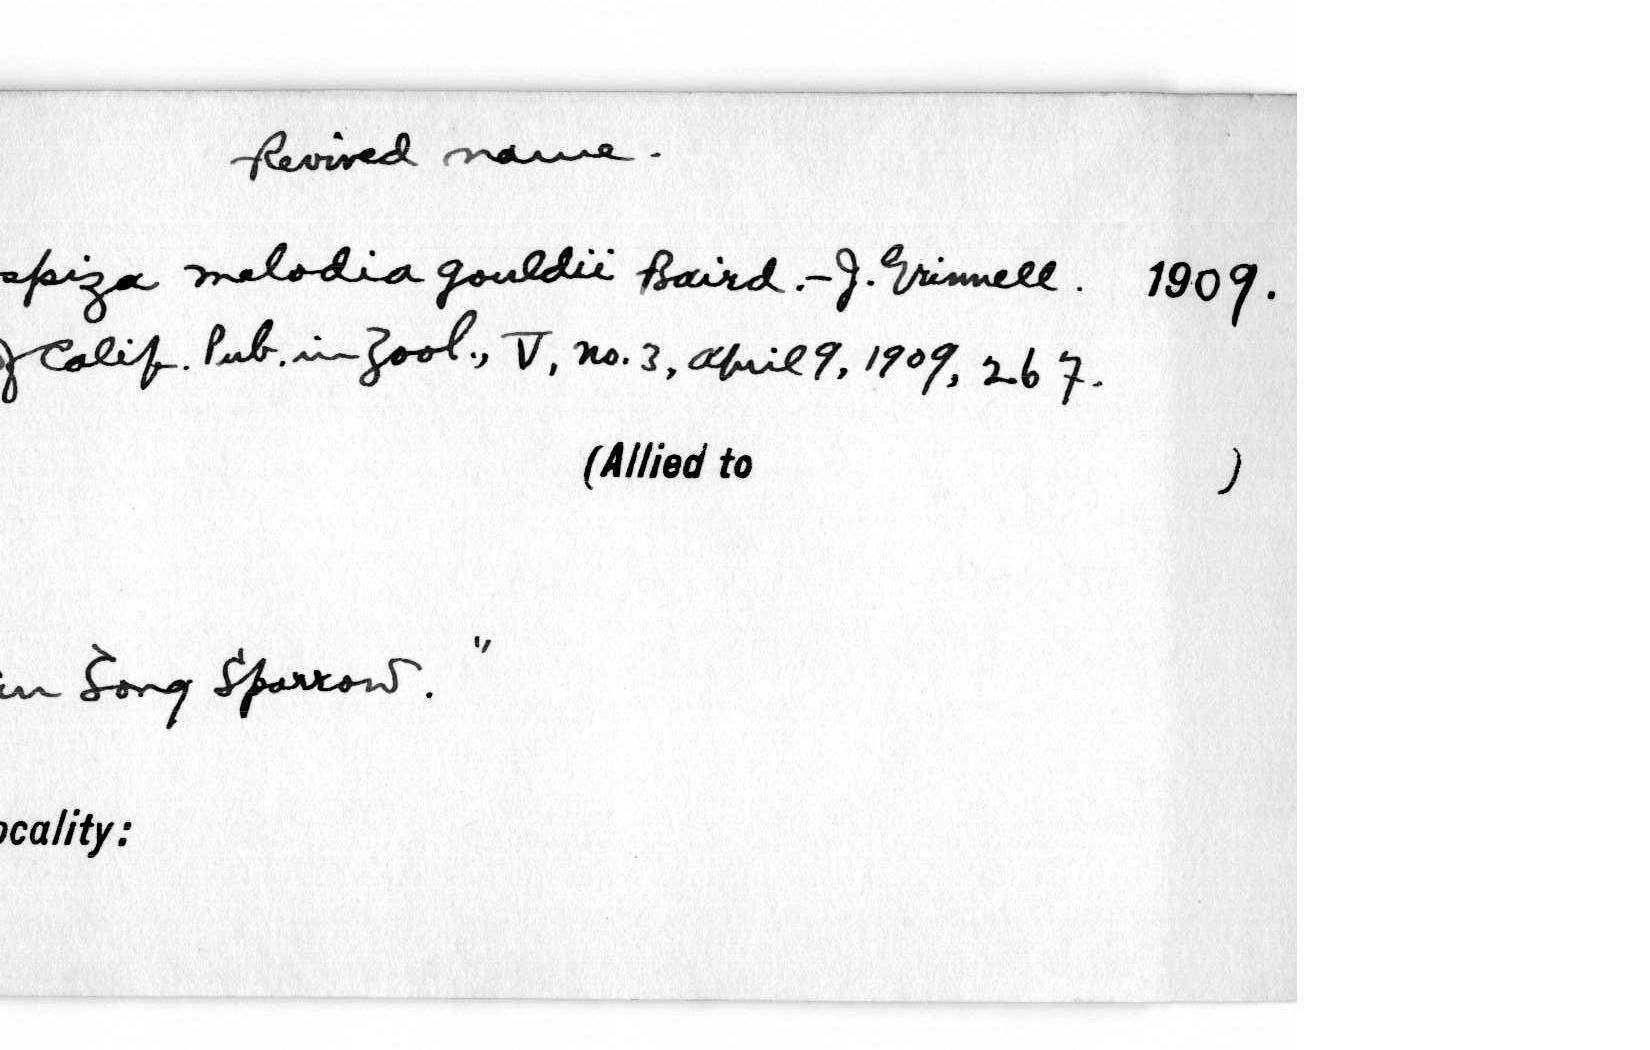 Revived name.
spiza melodia gouldii Baird.-J. Grinnell. 1909.
Calif. Pub. in Zool., V, no. 3, April 9, 1909, 267.
(Allied to )
in Song Sparrow."
ocality: